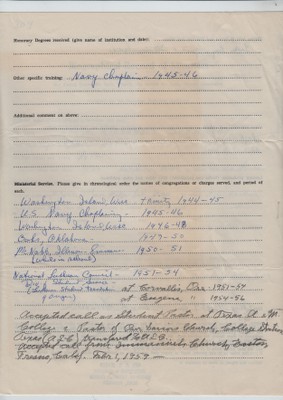 Honorary Degrees received (give name of institution and date):
Other specific training: Navy Chaplain 1945-46
Additional comment on above:
Ministerial Service. Please give in chronological order the names of congregations or charges served, and period of each.
Washington Island, Wisc. Trinity 1944-45
U.S. Navy Chaplaincy - 1945-46
Washington Island, Wisc 1946-48
Oaks, Oklahoma - 1949-50
McNabb, Illinois - 1950-51
National Lutheran Council - 1951-54
Student Service
(Lutheran Student Foundation
Oregon)
at Corvallis, Ore - 1951-54
at Eugene " 1954-56
Accepted call as Student Pastor at Texas A & M
College & Pastor of Our Saviors Church, College Station
Texas
Accepted call from Church, Easton,
Fresno, Calif. Feb 1, 1959 -